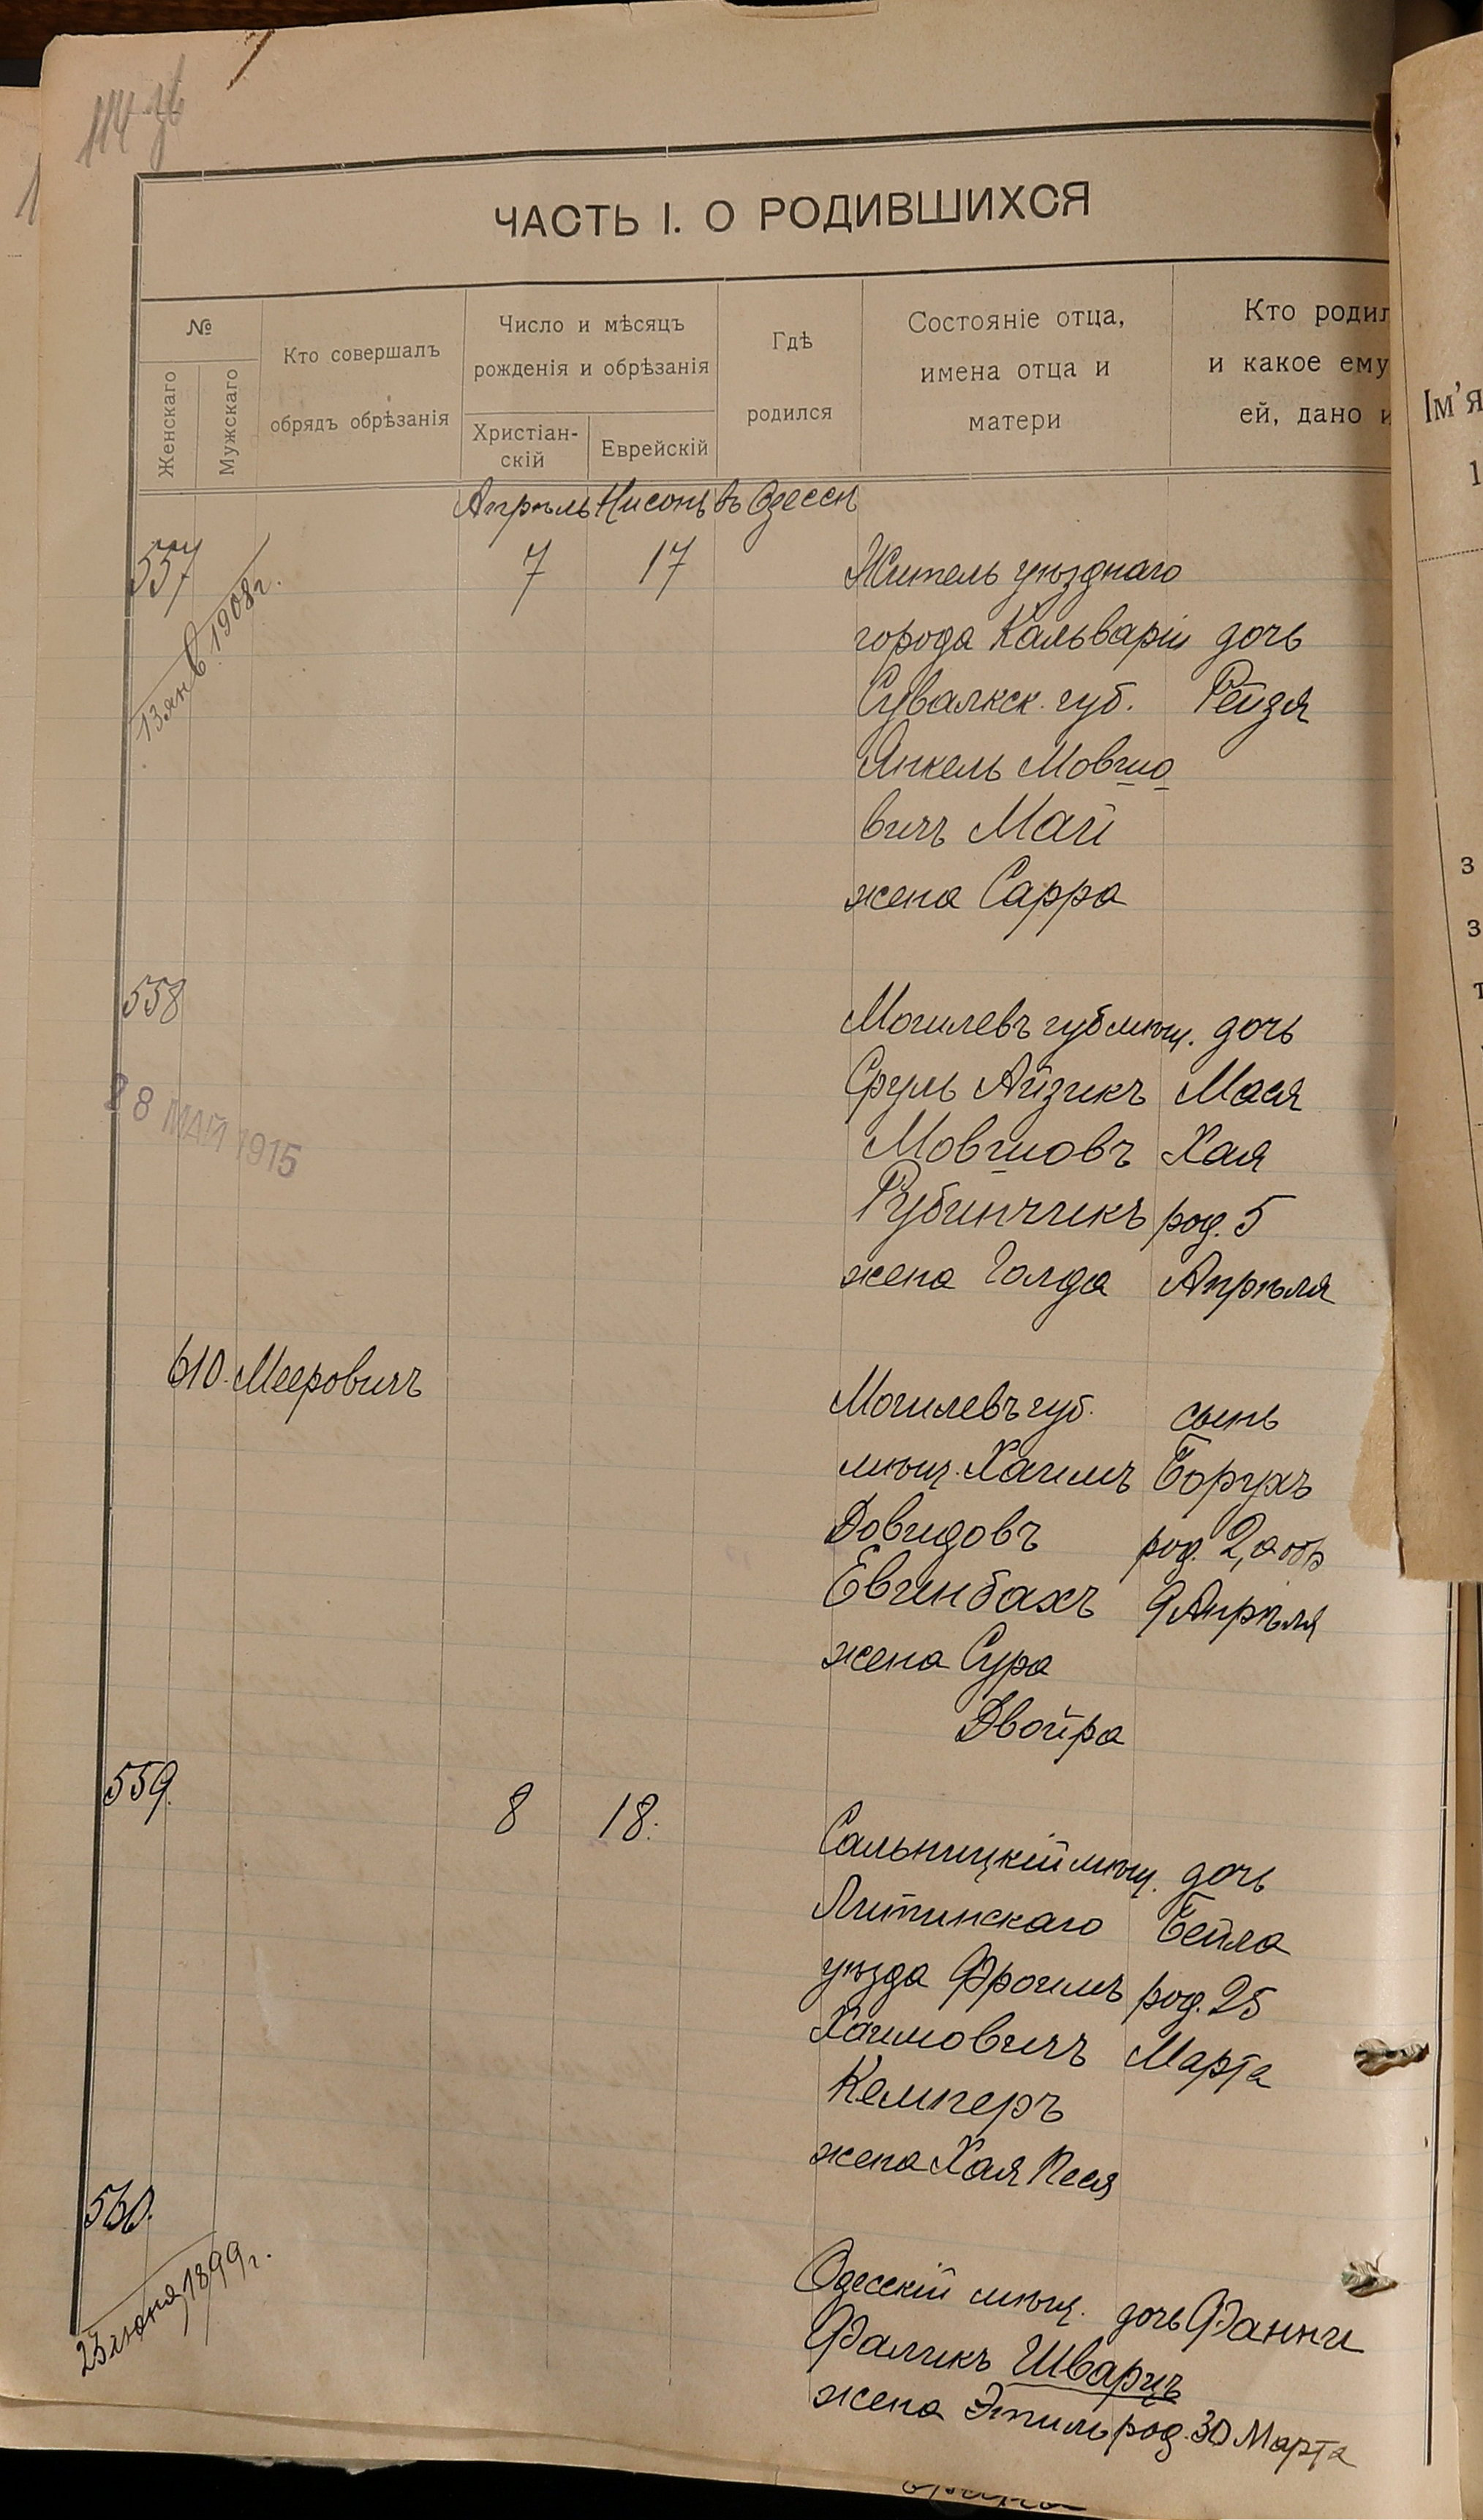 114 зв
ЧАСТЬ I. О РОДИВШИХСЯ
№
Женскаго
Мужскаго
Кто совершалъ
обрядъ обрѣзанія
Число и мѣсяцъ
рожденія и обрѣзанія
Христіан-
скій
Еврейскій
Гдѣ
родился
Состояніе отца,
имена отца и
матери
Кто родил
и какое ему
ей, дано и
Ім’я
1
Апрѣль Нисонъ въ Одессѣ
557 7 17 Житель уѣзднаго
13 янв 1908 г.
города Кальваріи дочь
Сувалкск. губ. Рейзя
Янкель Мовшо
вичъ Май
жена Сарра
558
28 МАЙ 1915
Могилевъ губ мѣщ. дочь
Сруль Айзикъ Мася
Мовшовъ Хая
Рубинчикъ род. 5
жена Голда Апрѣля
610. Мееровичъ
Могилевъ губ. сынъ
мѣщ. Хаимъ Борухъ
Довидовъ род. 2, а обр
Евгинбахъ 9 Апрѣля
жена Сура
Двойра
559. 8 18.
Сальницкій мѣщ. дочь
Литинскаго Бейла
уѣзда Фроимъ род. 25
Хаимовичъ Марта
Кемперъ
жена Хая Песя
560.
23 июня 1899 г.
Одесскій мѣщ. дочь Фанни
Фаликъ Шварцъ
жена Этиль род. 30 Марта